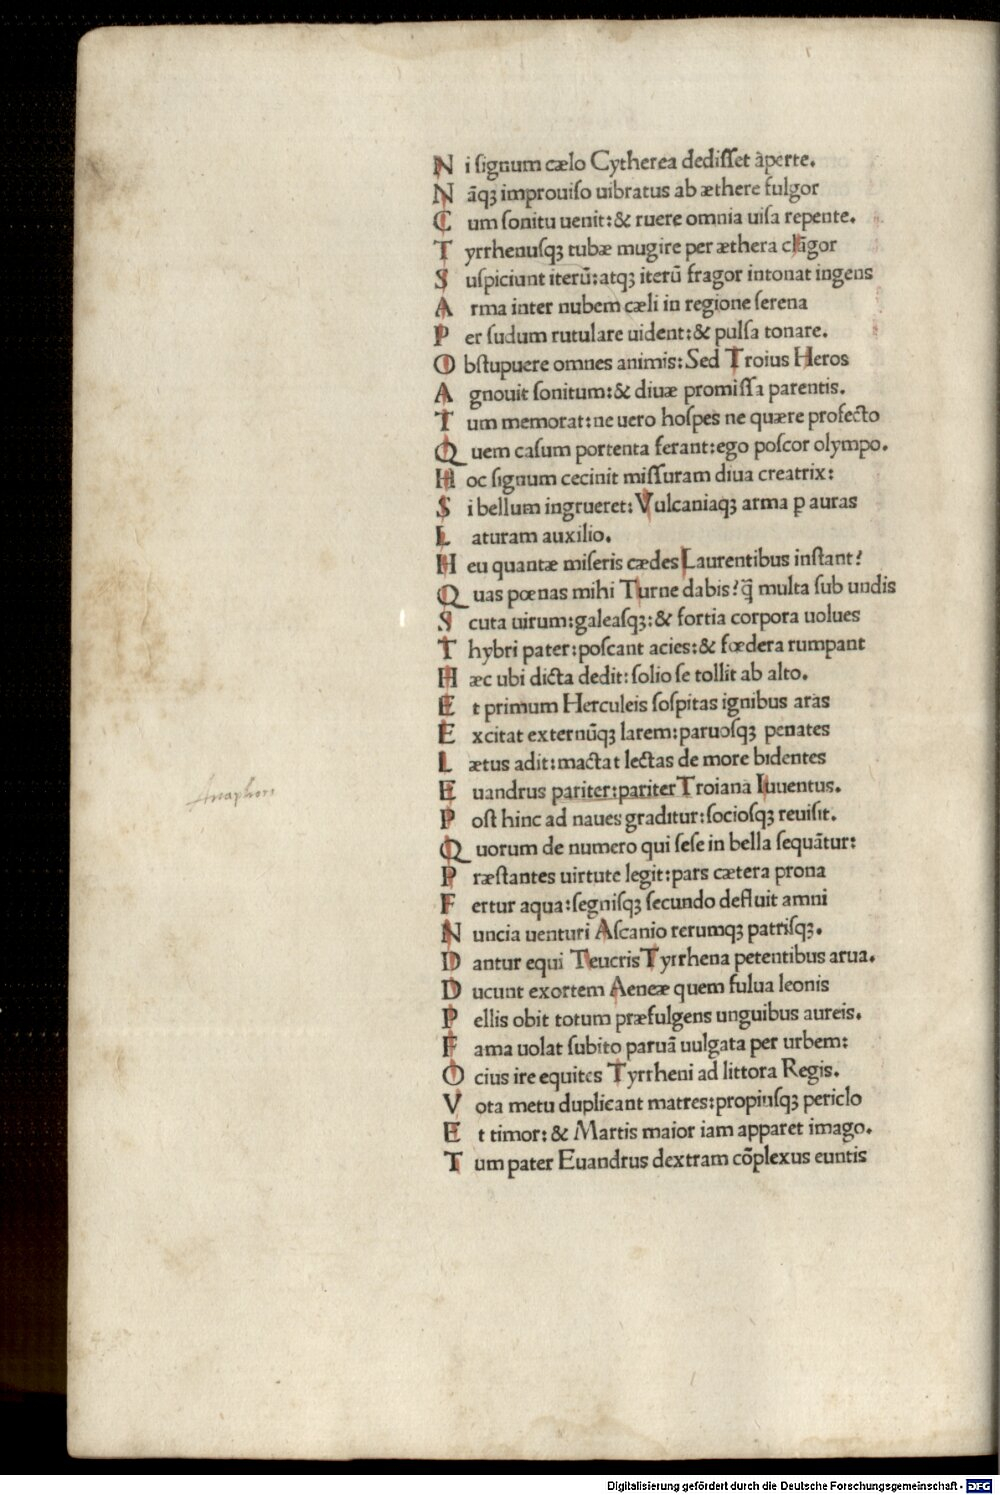 N i ſignum cælo Cytherea dediſſet aperte.
N āqꝫ improuiſo uibratus ab æthere fulgor
C um ſonitu uenit:& ruere omnia uiſa repente.
T yrrhenuſqꝫ tubæ mugire per æthera clāgor
S uſpiciunt iterū:atqꝫ iterū fragor intonat ingens
A rma inter nubem cæli in regione ſerena
P er ſudum rutulare uident:& pulſa tonare.
O bſtupuere omnes animis:Sed Troius Heros
A gnouit ſonitum:& diuæ promiſſa parentis.
T um memorat:ne uero hoſpes ne quære profecto
Q uem caſum portenta ferant:ego poſcor olympo.
H oc ſignum cecinit miſſuram diua creatrix:
S i bellum ingrueret:Vulcaniaqꝫ arma ꝑ auras
L aturam auxilio.
H eu quantæ miſeris cædes Laurentibus inſtant?
Q uas pœnas mihi Turne dabis?q̄ multa ſub undis
S cuta uirum:galeaſqꝫ:& fortia corpora uolues
T hybri pater:poſcant acies:& fœdera rumpant
H æc ubi dicta dedit:ſolio ſe tollit ab alto.
E t primum Herculeis ſoſpitas ignibus aras
E xcitat externūqꝫ larem:paruoſqꝫ penates
L ætus adit:mactat lectas de more bidentes
Anaphora
E uandrus pariter:pariter Troiana Iuuentus.
P oſt hinc ad naues graditur:ſocioſqꝫ reuiſit.
Q uorum de numero qui ſeſe in bella ſequātur:
P ræſtantes uirtute legit:pars cætera prona
F ertur aqua:ſegniſqꝫ ſecundo defluit amni
N uncia uenturi Aſcanio rerumqꝫ patriſqꝫ.
D antur equi Teucris Tyrrhena petentibus arua.
D ucunt exortem Aeneæ quem fulua leonis
P ellis obit totum præfulgens unguibus aureis.
F ama uolat ſubito paruā uulgata per urbem:
O cius ire equites Tyrrheni ad littora Regis.
V ota metu duplicant matres:propiuſqꝫ periclo
E t timor:& Martis maior iam apparet imago.
T um pater Euandrus dextram cōplexus euntis
Digitalisierung gefördert durch die Deutsche Forschungsgemeinschaft - DFG